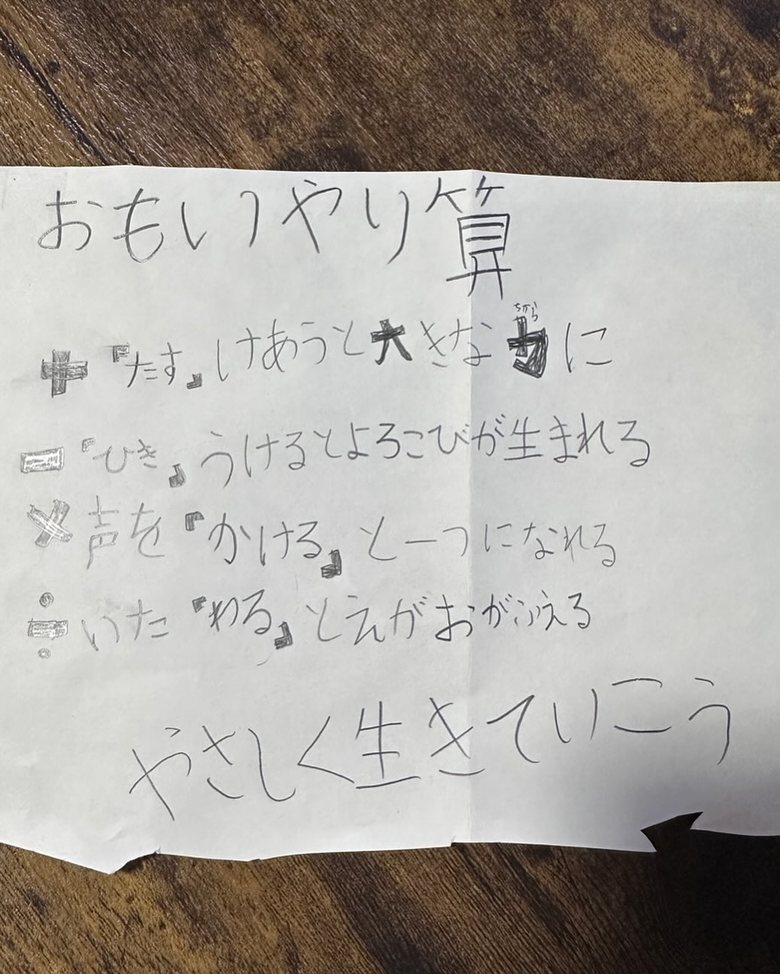 おもいやり算
＋『たす』けあうと大きな力に
ちから
－『ひき』うけるとよろこびが生まれる
×声を『かける』と一つになれる
÷いた『わる』とえがおがふえる
やさしく生きていこう